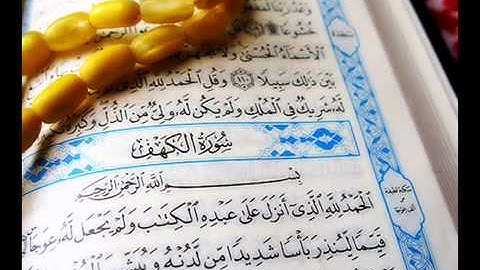 خُشُوعًا
الْأَسْمَاءُ الْحُسْنَىٰ وَلَا
بَيْنَ ذَٰلِكَ سَبِيلًا ١١٠ وَقُلِ الْحَمْدُ لِلَّهِ الَّذِي
لَّهُ شَرِيكٌ فِي الْمُلْكِ وَلَمْ يَكُن لَّهُ وَلِيٌّ مِّنَ الذُّلِّ وَكَبِّرْهُ
سُورَةُ الْكَهْفِ
بِسْمِ اللَّهِ الرَّحْمَٰنِ الرَّحِيمِ
الْحَمْدُ لِلَّهِ الَّذِي أَنزَلَ عَلَىٰ عَبْدِهِ الْكِتَٰبَ وَلَمْ يَجْعَل لَّهُ عِوَجًا
قَيِّمًا لِّيُنذِرَ بَأْسًا شَدِيدًا مِّن لَّدُنْهُ وَيُبَشِّرَ